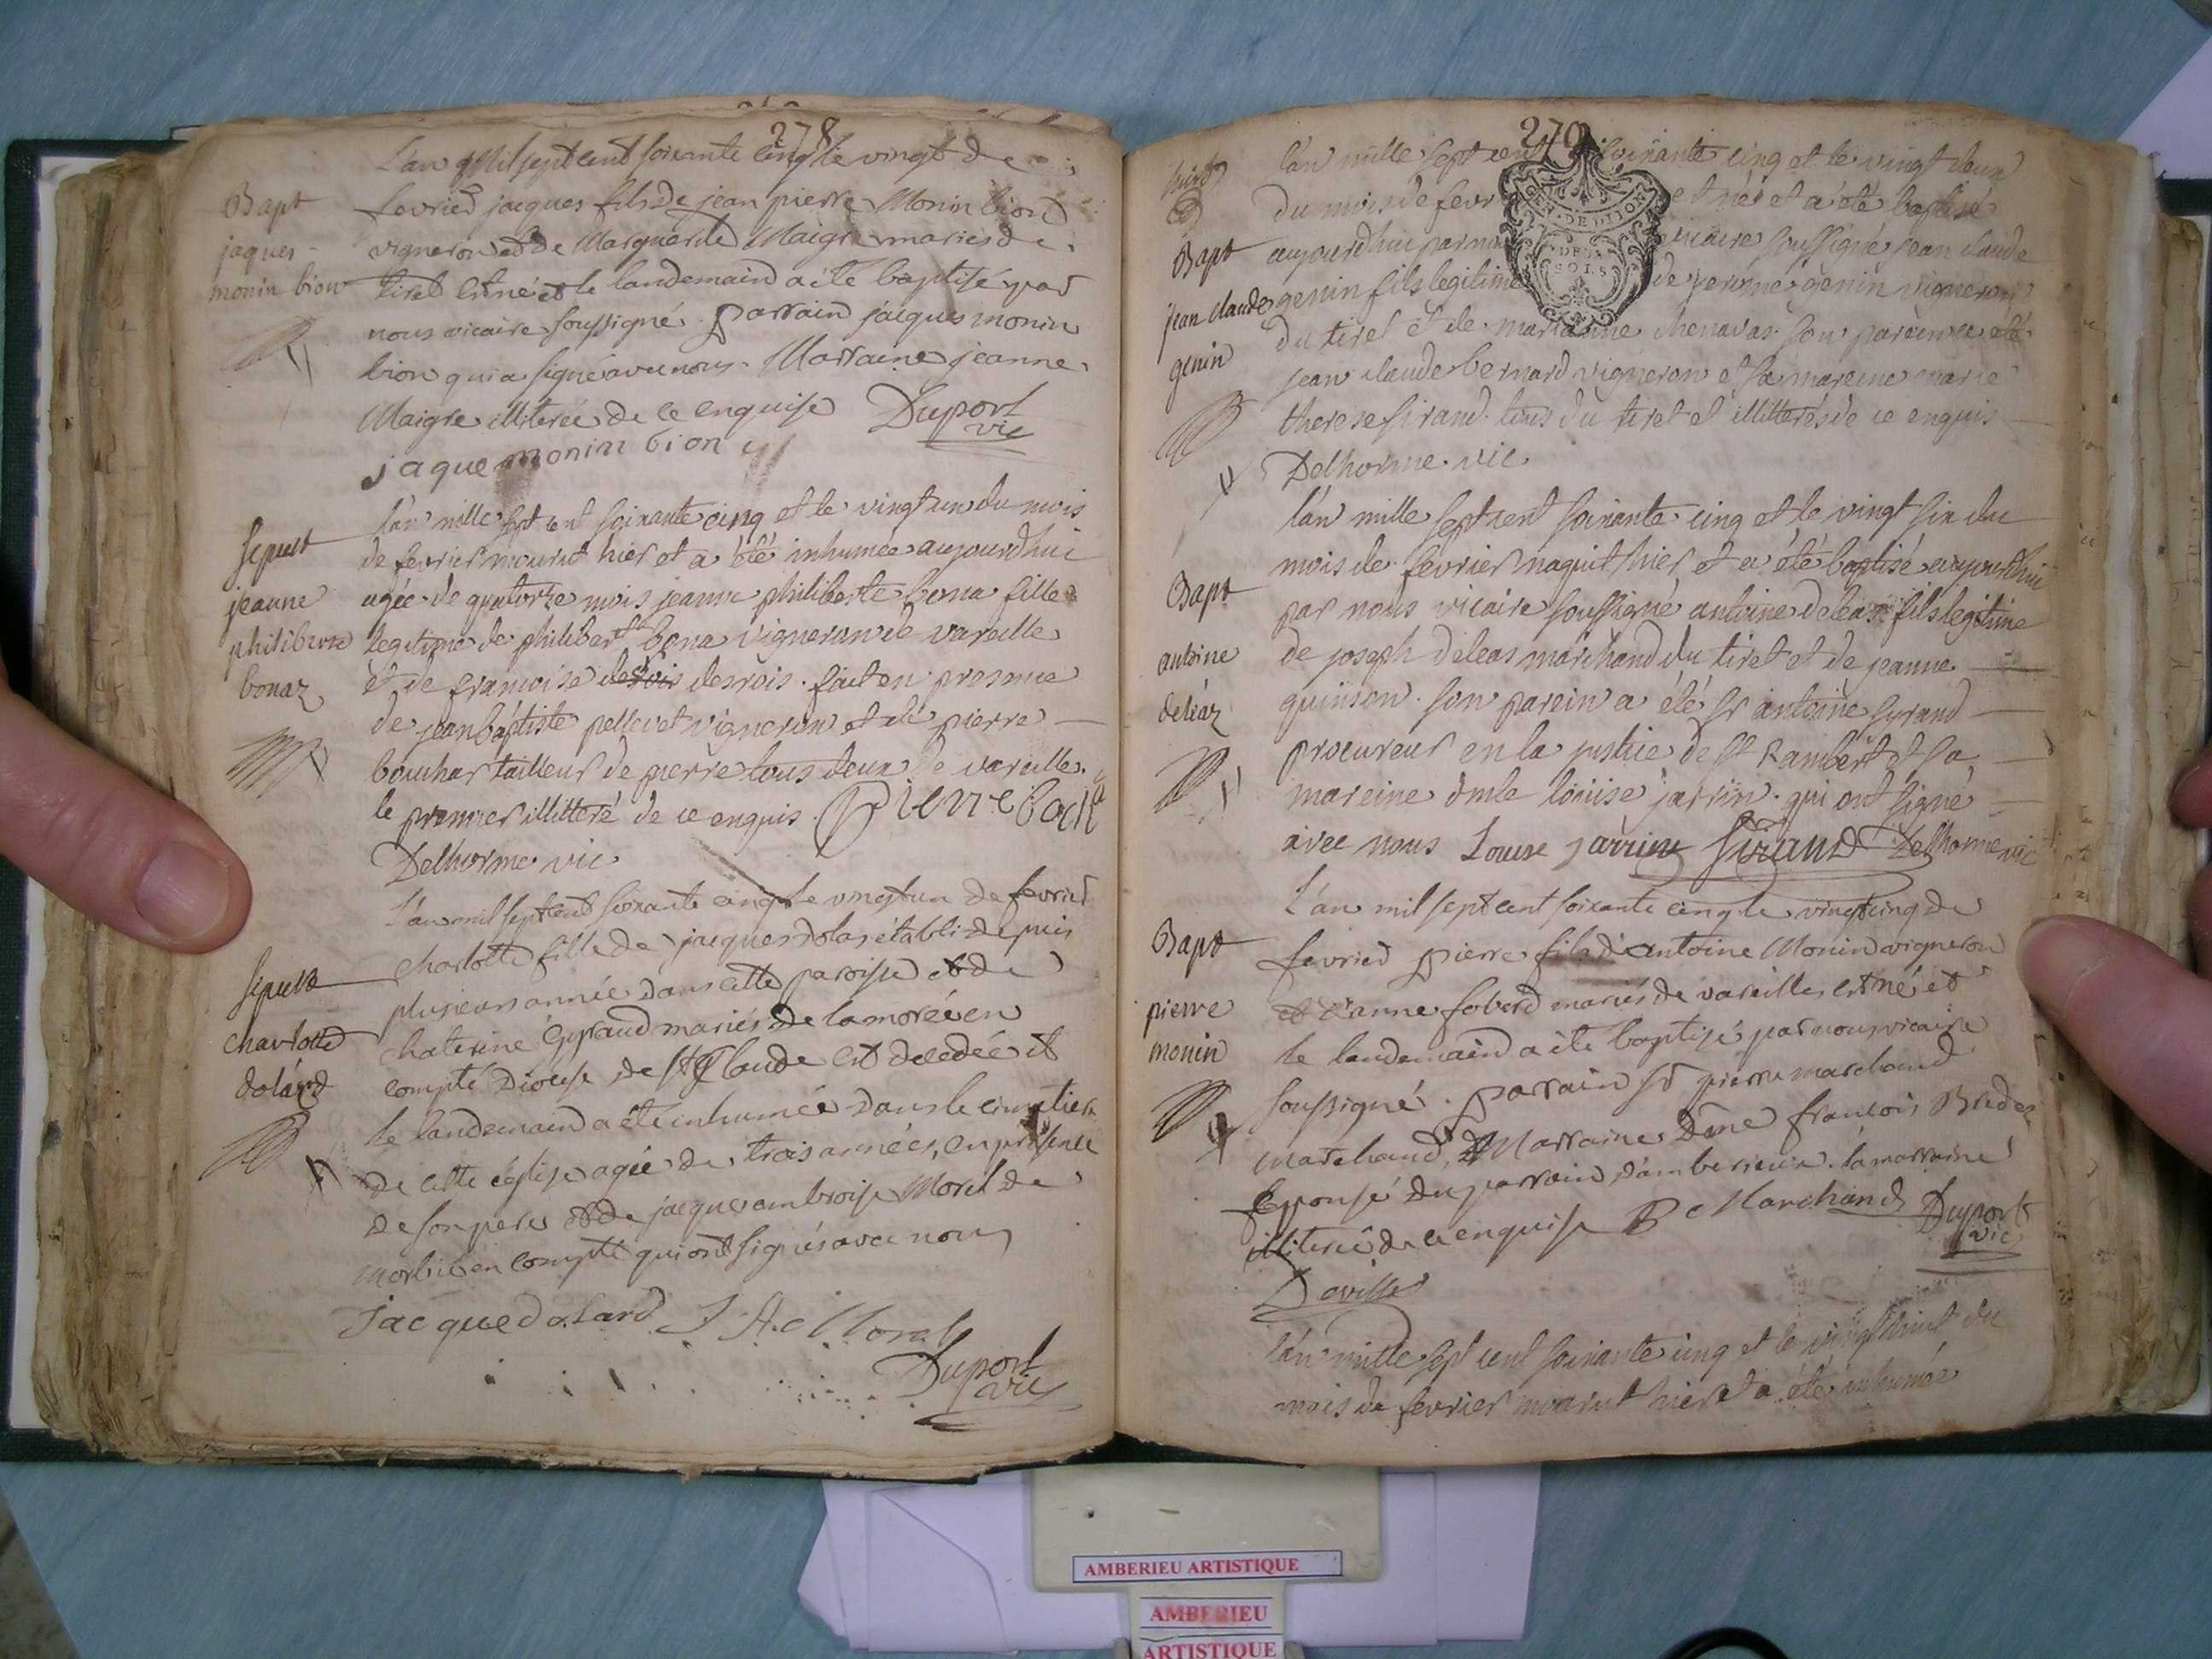 278
L'an Mil sept cent soixante cinq le vingt de
Bapt
jaques
monin bion
fevrier jacques fils de jean pierre Monin bion
vigneron et de Marguerite Maigre mariés de
tiret est né et le landemain a été baptisé par
nous vicaire soussigné. Parrain jacques monin
bion qui a signé avec nous. Marraine jeanne
Maigre illiterée de ce enquise Duport
vic
jaque monin bion
Sepult
jeanne
philiberte
bonaz
l'an mille sept cent soixante cinq et le vingt un du mois
de fevrier mourut hier et a été inhumée aujourdhui
agée de quatorze mois jeanne philiberte bona fille
legitime de philibert bona vigneron de vareille
et de francoise desrois. fait en presence
de jean baptiste pellevet vigneron et de pierre
bouchar tailleur de pierre tous deux de vareille.
le premier illitteré de ce enquis. Pierre
Delhorme vic
Sepult
charlotte
dolard
L'an mil sept cent soixante cinq le vingt un de fevrier
charlotte fille de jacques dolar établi depuis
plusieurs année dans cette paroisse et de
chaterine Gyraud mariés de lamorée en
compté Diocese de St Claude est decedée et
le landemain a été inhumée dans le cimetiere
de cette église agée de trois années, en présence
de son pere et de jacques ambroise Morel de
morbié en compté qui ont signés avec nous
jacque dolard J A Morel
Duport
vic
279
GEN. DE DIJON
DEUX
SOLS
l'an mille sept cent soixante cinq et le vingt deux
Bapt
jean claude
genin
du mois de fevr et né et a été baptisé
aujourdhui par no vicaire soussigné jean claude
genin fils legitime de jerome genin vigneron
du tiret et de marianne chenavas. son parein a été
jean claude bernard vigneron et sa mareine marie
therese sirand. tous du tiret et illitterés de ce enquis
Delhorme vic
Bapt
antoine
deléaz
l'an mille sept cent soixante cinq et le vingt six du
mois de fevrier naquit hier et a été baptisé aujourdhui
par nous vicaire soussigné antoine deleas fils legitime
de joseph deleas marchand du tiret et de jeanne
quinson. son parein a été sr antoine sirand
procureur en la justice de st Rambert et sa
mareine dmle loüise jarrin. qui ont signé
avec nous Louise jarrin Sirand Delhorme vic
Bapt
pierre
monin
L'an mil sept cent soixante cinq le vingt cinq de
fevrier pierre fils d'antoine Monin vigneron
et d'anne mariés de vareilles est né et
le landemain a été baptisé par nous vicaire
soussigné. parrain Sr pierre marchand
marchand, Marraine Dme francois
Epouse du parrain d'amberieux. la marraine
illiterée de ce enquise Marchand Duport
vic
l'an mille sept cent soixante cinq et le vingt huit du
mois de fevrier mourut hier et a été inhumée
AMBERIEU ARTISTIQUE
AMBERIEU
ARTISTIQUE